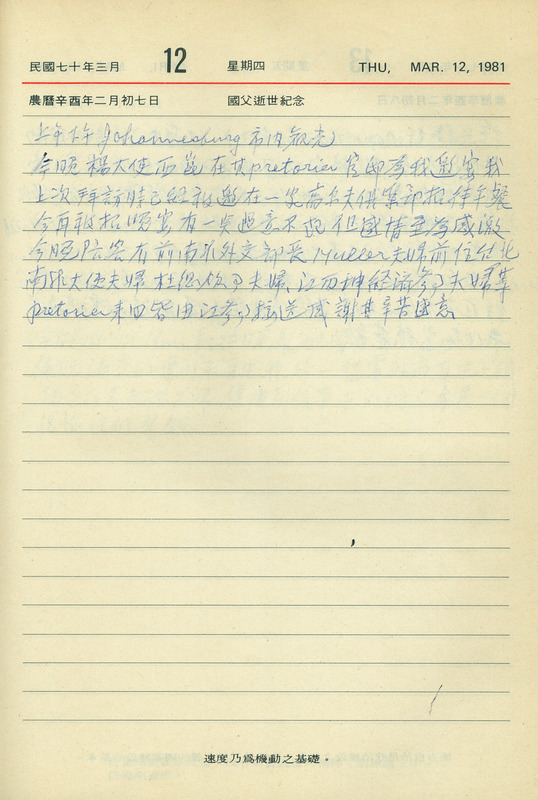 民國七十年三月 12 星期四 THU, MAR. 12, 1981
農曆辛酉年二月初七日 國父逝世紀念
上午下午Johannesburg市內觀光
今晚楊大使西崑在其pretorier官邸為我邀宴我
上次拜訪時已經被邀在一處高尔夫俱業部招待午餐
今再被招晚宴有一點過意不起但感情至為感激
今晚陪客有前南非外交部長Muller夫婦前任台北
南非大使夫婦杜總領事夫婦、江西坤經濟參事夫婦等
pretorier來回皆由江參事接送感謝其辛苦盛意
速度乃爲機動之基礎・